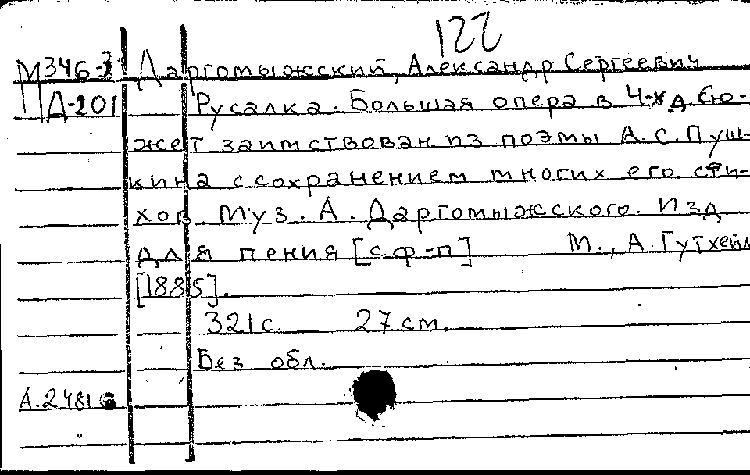 122
М346-3 Даргомыжский, Александр Сергеевич
Д-201 Русалка. Большая опера в 4-х д. Сю-
жет заимствован из поэмы А.С.Пуш-
кина с сохранением многих его сти-
хов. Муз. А. Даргомыжского. Изд
для пения [с ф-п] М., А. Гутхейл
[1885].
321 с. 27 см.
Без обл.